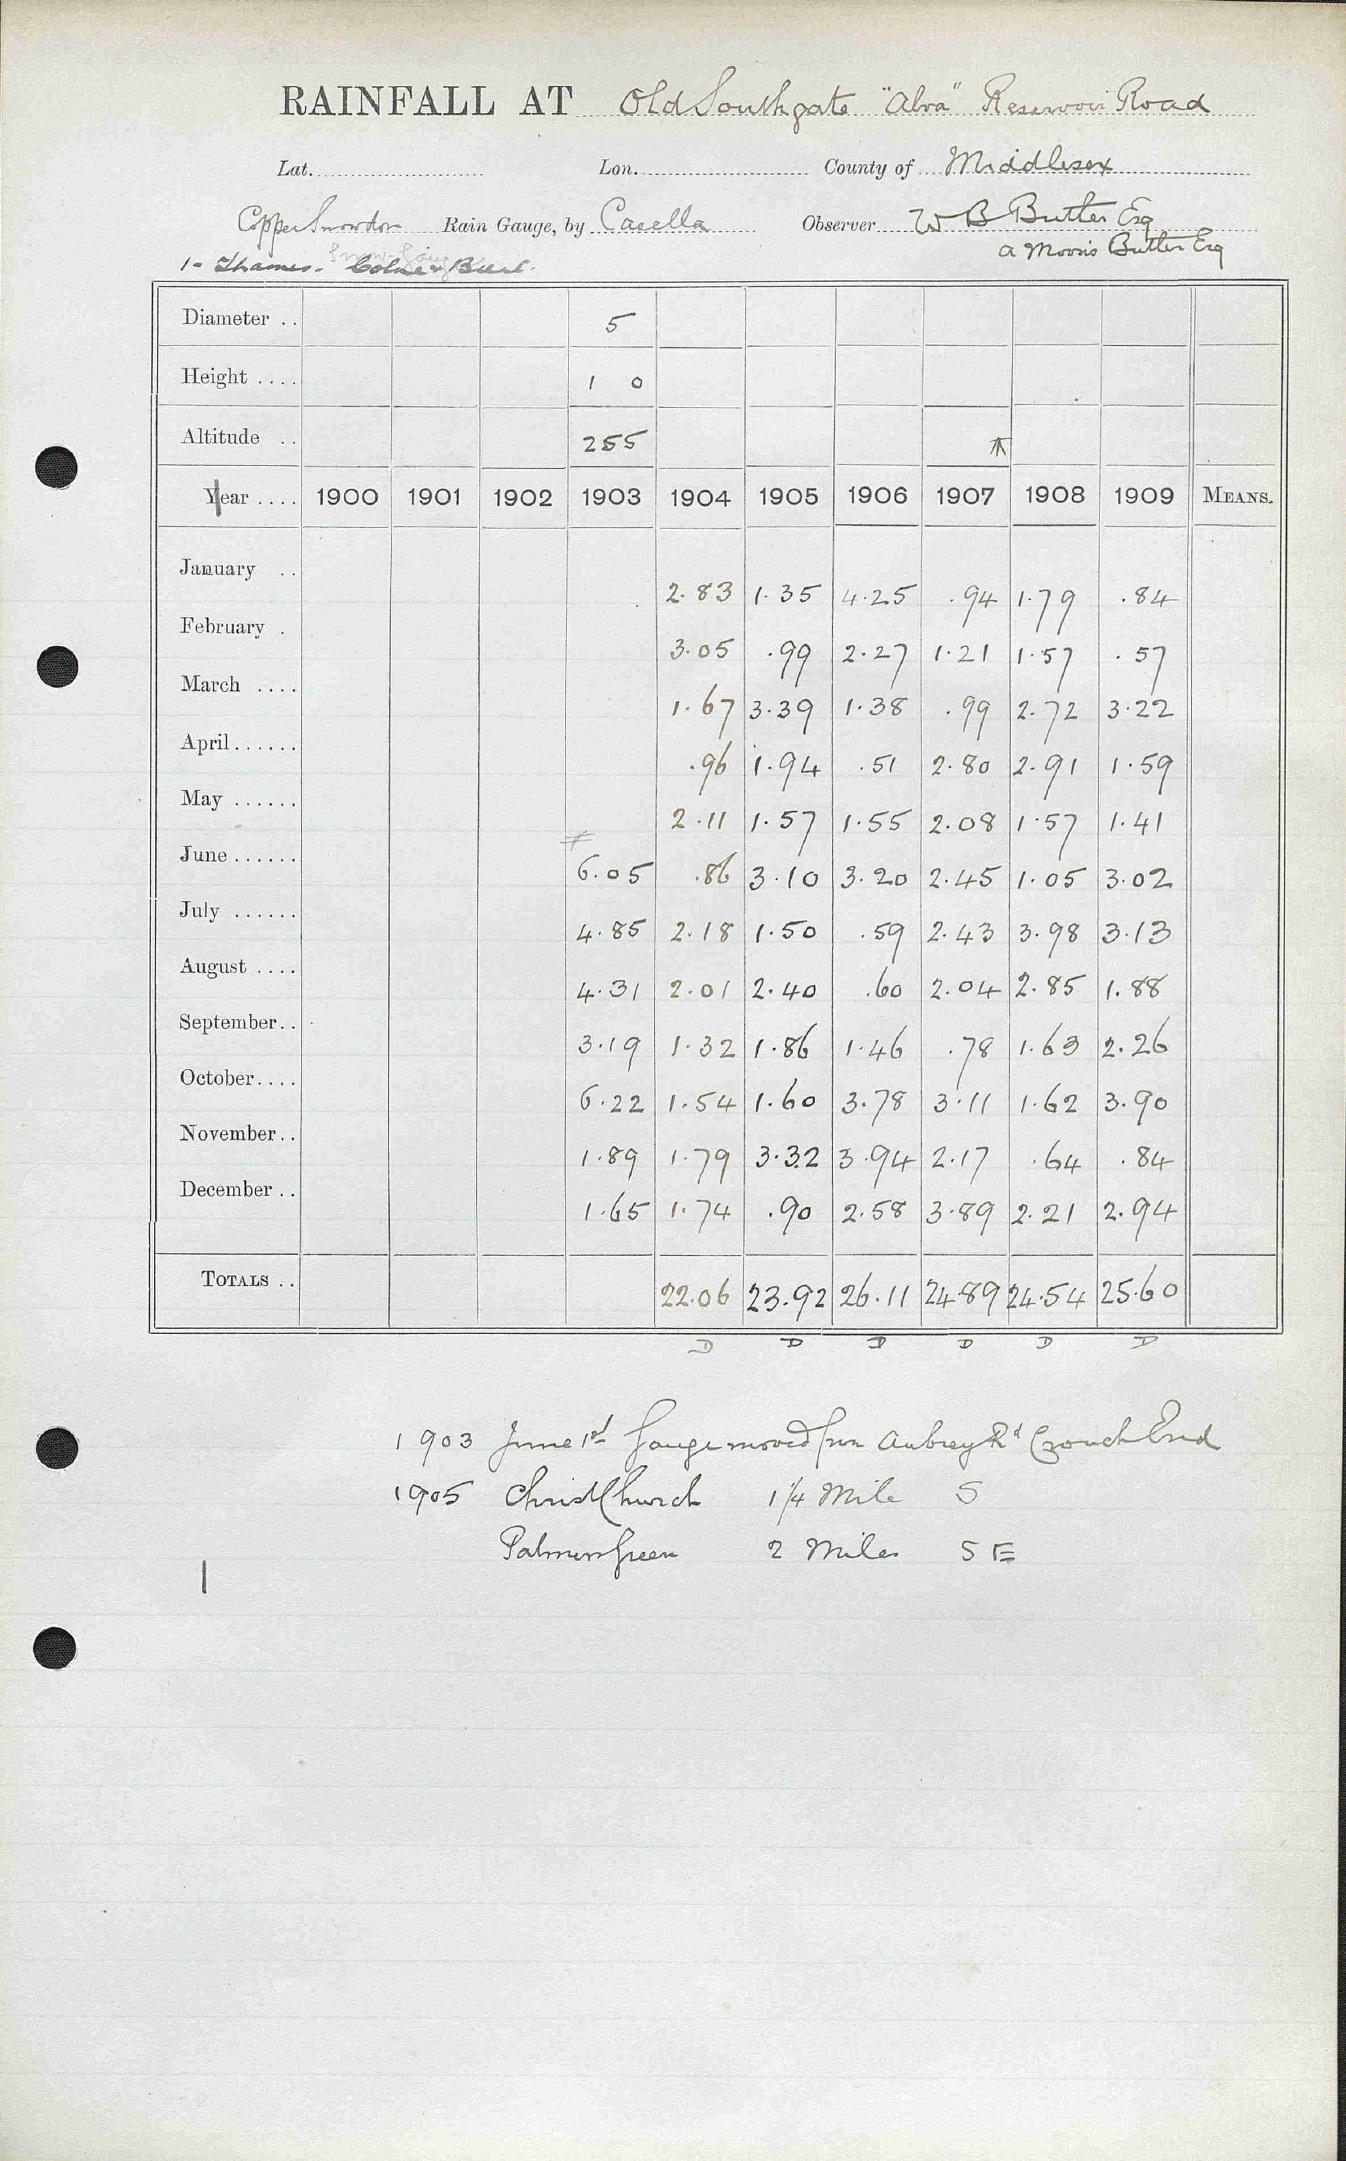 RAINFALL AT Old Southgate "Alva" Reservoir Road
Lat. Lon. County of Middlesex
Copper Snowdon Rain Gauge, by Casella Observer W B Butler Esq
1- Thames. Colne & Bure. A Morris Butler Esq
Diameter .. 5
Height .... 1 0
Altitude .. 255
Year .... 1900 1901 1902 1903 1904 1905 1906 1907 1908 1909 MEANS.
January .. 2.83 1.35 4.25 .94 1.79 .84
February . 3.05 .99 2.27 1.21 1.57 .57
March .... 1.67 3.39 1.38 .99 2.72 3.22
April...... .96 1.94 .51 2.80 2.91 1.59
May ...... 2.11 1.57 1.55 2.08 1.57 1.41
June...... 6.05 .86 3.10 3.20 2.45 1.05 3.02
July ...... 4.85 2.18 1.50 .59 2.43 3.98 3.13
August .... 4.31 2.01 2.40 .60 2.04 2.85 1.88
September.. 3.19 1.32 1.86 1.46 .78 1.63 2.26
October.... 6.22 1.54 1.60 3.78 3.11 1.62 3.90
November.. 1.89 1.79 3.32 3.94 2.17 .64 .84
December .. 1.65 1.74 .90 2.58 3.89 2.21 2.94
TOTALS .. 22.06 23.92 26.11 24.89 24.54 25.60
D D D D D D
1903 June 1st Gauge moved from Aubrey Rd Crouch End
1905 Christ Church 1¼ Mile S
Palmers Green 2 Miles SE